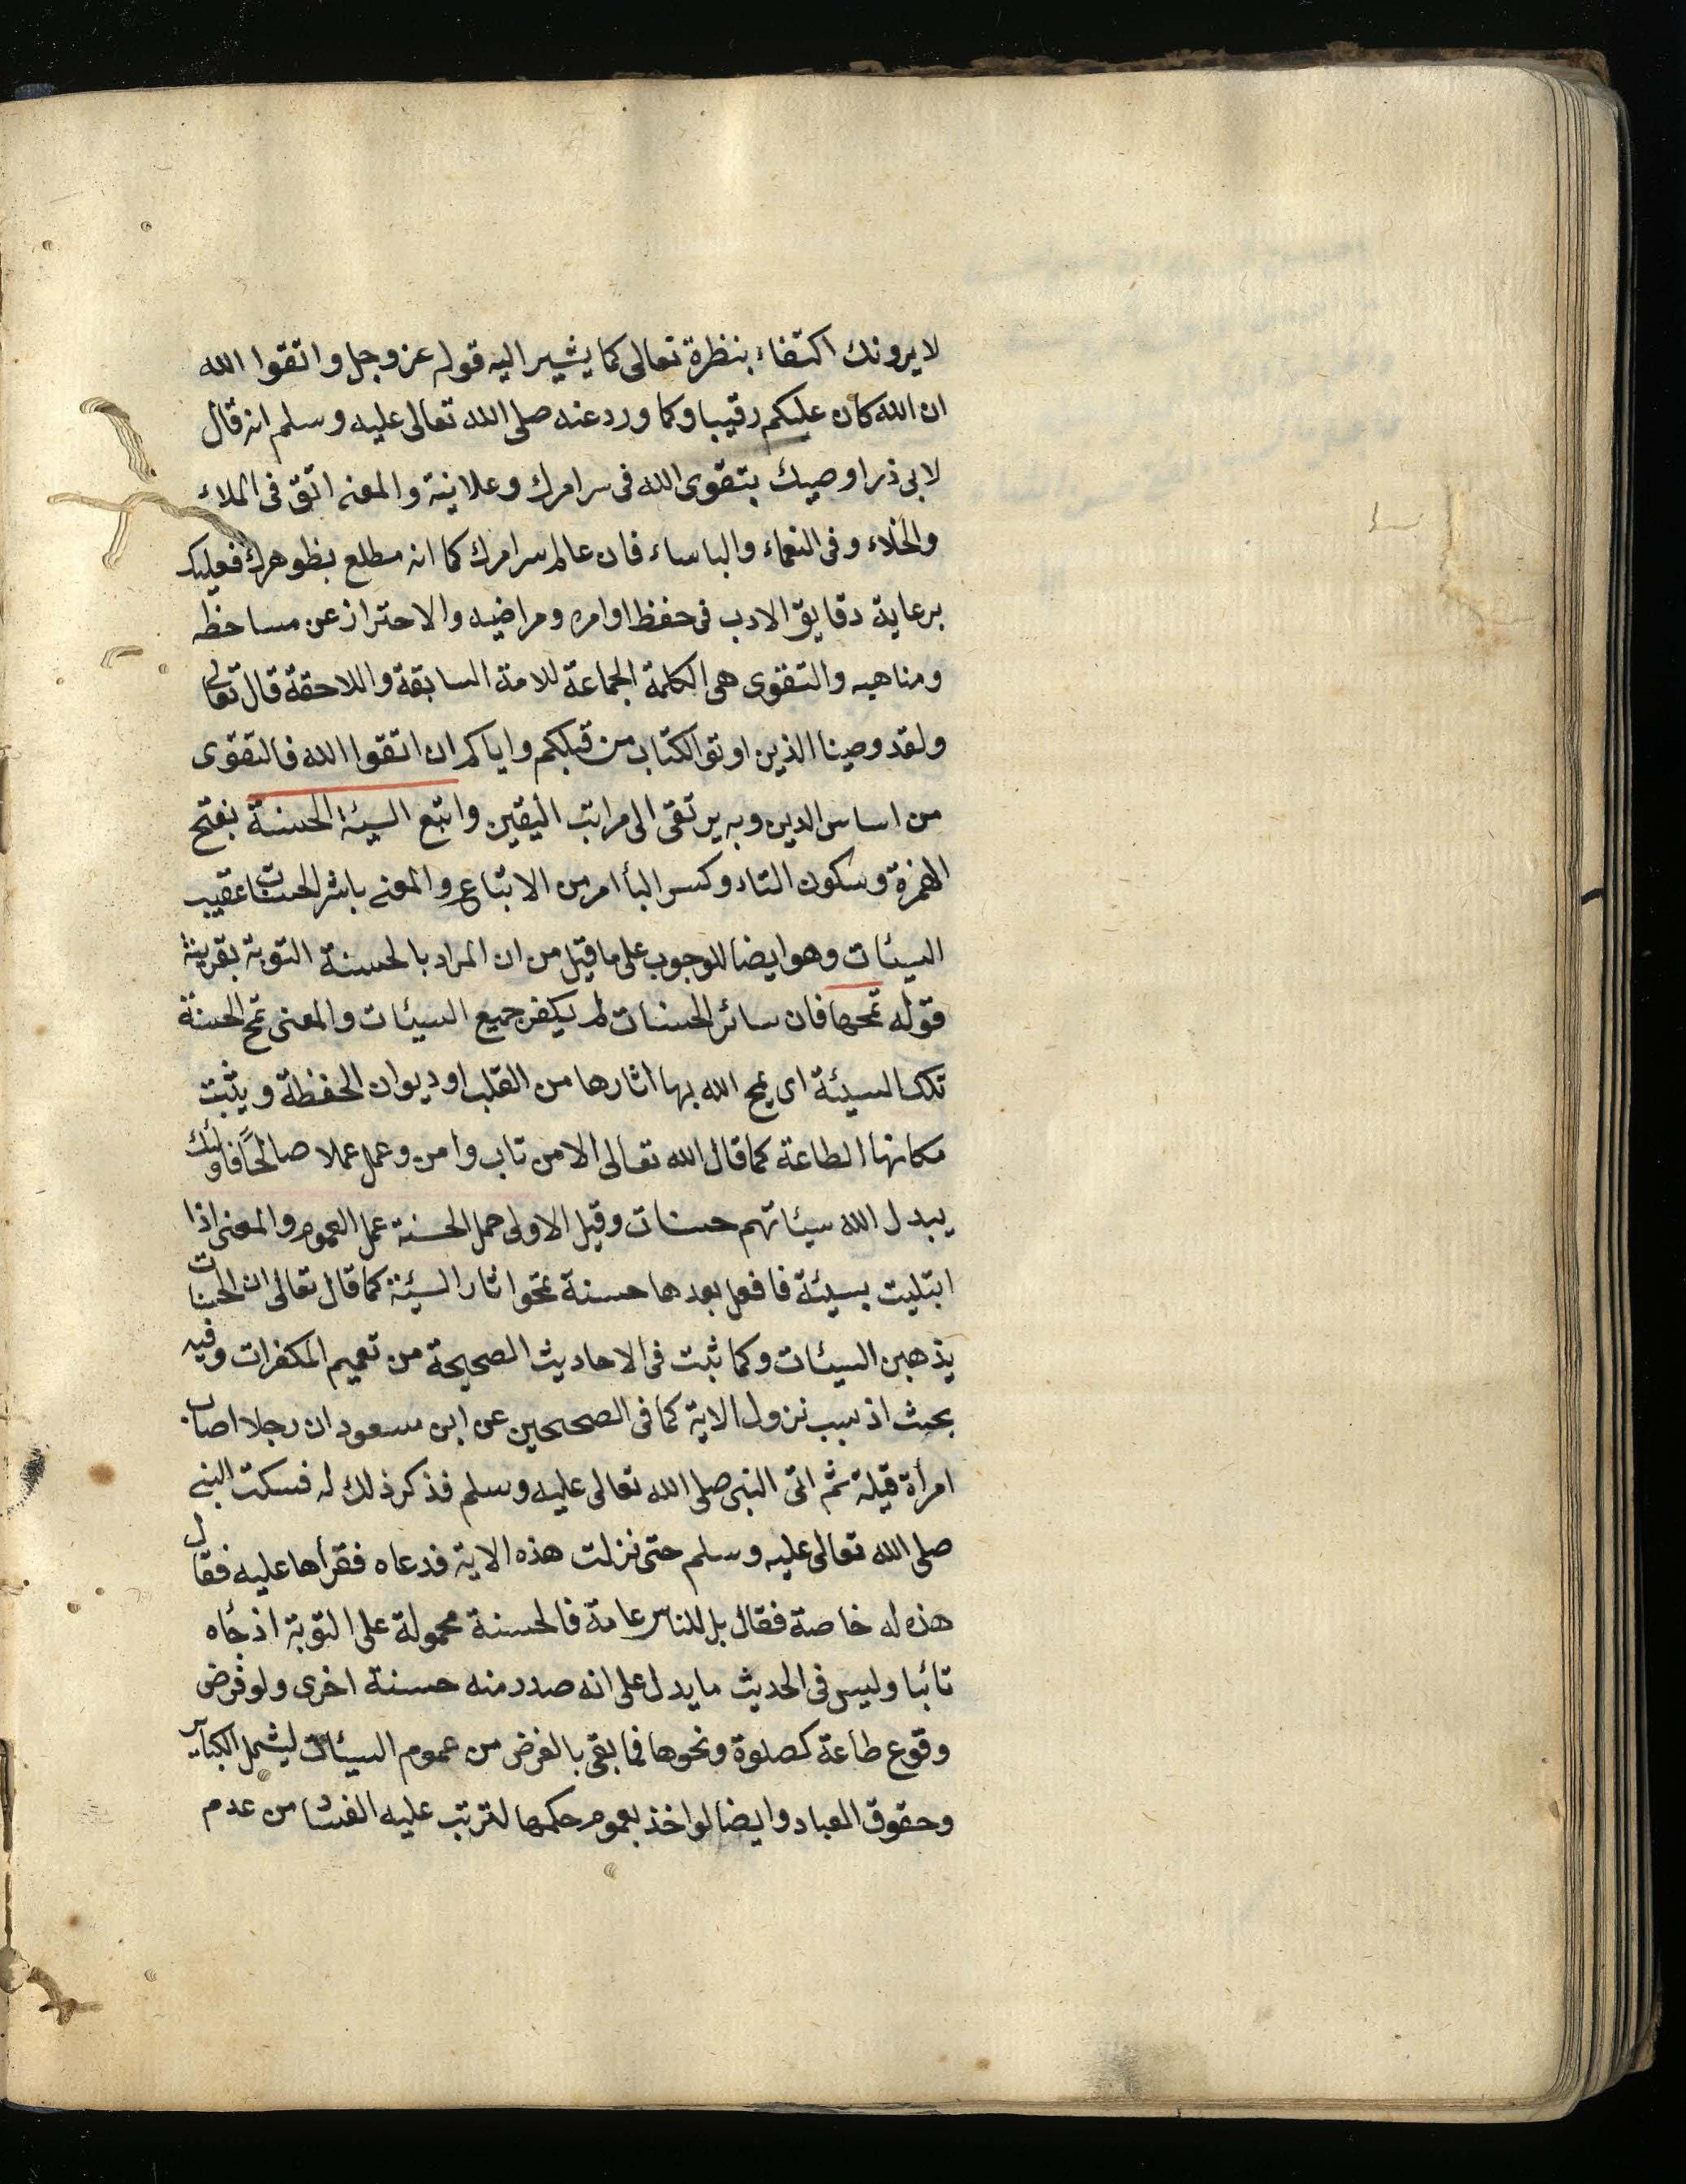 لا يرونك اكتفاء بنظرة تعالى كما يشير اليه قوله عز وجل واتقوا الله
ان الله كان عليكم رقيبا وكما ورد عنه صلى الله تعالى عليه وسلم انه قال
لابى ذر اوصيك بتقوى الله فى سر امرك وعلانية والمعنى اتق فى الملاء
والخلاء وفى النعماء والباساء فان عالم سر امرك كما انه مطلع بظوهرك فعليك
برعاية دقايق الادب فى حفظ اوامره ومراضيه والاحتراز عن مساخطه
ومناهيه والتقوى هى الكلمة الجماعة للامة السابقة واللاحقة قال تعالى
ولقد وصينا الذين اوتو الكتاب من قبلكم واياكم ان اتقوا الله فالتقوى
من اساس الدين وبه يرتقى الى مراتب اليقين واتبع السيئة الحسنة بفتح
الهمزة وسكون التاء وكسر البأ امر من الاتباع والمعنى باشر الحسنات عقيب
السيئات وهو ايضا للوجوب على ما قيل من ان المراد بالحسنة التوبة بقرينة
قوله تمحها فان سائر الحسنات لم يكفر جميع السيئات والمعنى تمح الحسنة
تلك السيئة اى يمح الله بها اثارها من القلب او ديوان الحفظة ويثبت
مكانها الطاعة كما قال الله تعالى الا من تاب وامن وعمل عملا صالحًا فاولئك
يبدل الله سيئاتهم حسنات وقيل الاولى حمل الحسنة عمل العموم والمعنى اذا
ابتليت بسيئة فافعل بعدها حسنة تمحوا ثار السيئة كما قال تعالى ان الحسنات
يذهبن السيئات وكما ثبت فى الاحاديث الصحيحة من تعميم المكفرات وفيه
بحث اذ سبب نزول الاية كما فى الصحيحين عن ابن مسعود ان رجلا اصاب
امرأة قبلة ثم اتى النبى صلى الله تعالى عليه وسلم فذكر ذلك له فسكت النبى
صلى الله تعالى عليه وسلم حتى نزلت هذه الاية فدعاه فقرأها عليه فقال
هذه له خاصة فقال بل للناس عامة فالحسنة محمولة على التوبة اذ جاه
تائبا وليس فى الحديث ما يدل على انه صدر منه حسنة اخرى ولو فرض
وقوع طاعة كصلوة ونحوها فما بقى بالغرض من عموم السيئات ليشمل الكباير
وحقوق العباد وايضا لو اخذ بعموم حكمها لترتب عليه الفساد من عدم